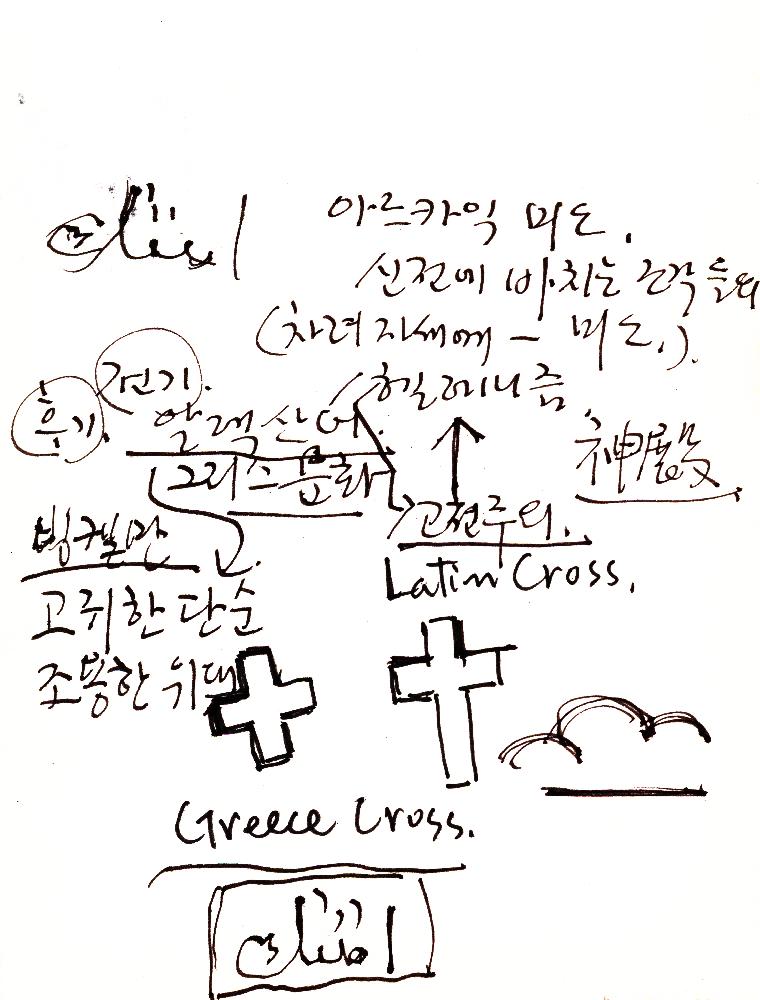 아르카익 미소.
신전에 바치는 조각들의
(차려자세에 – 미소.).
전기. 헬레니즘.
후기. 알렉산더.
그리스문화
神殿
고전주의.
빙켈만
Latin Cross.
고귀한 단순
조용한 위대
Greece Cross.